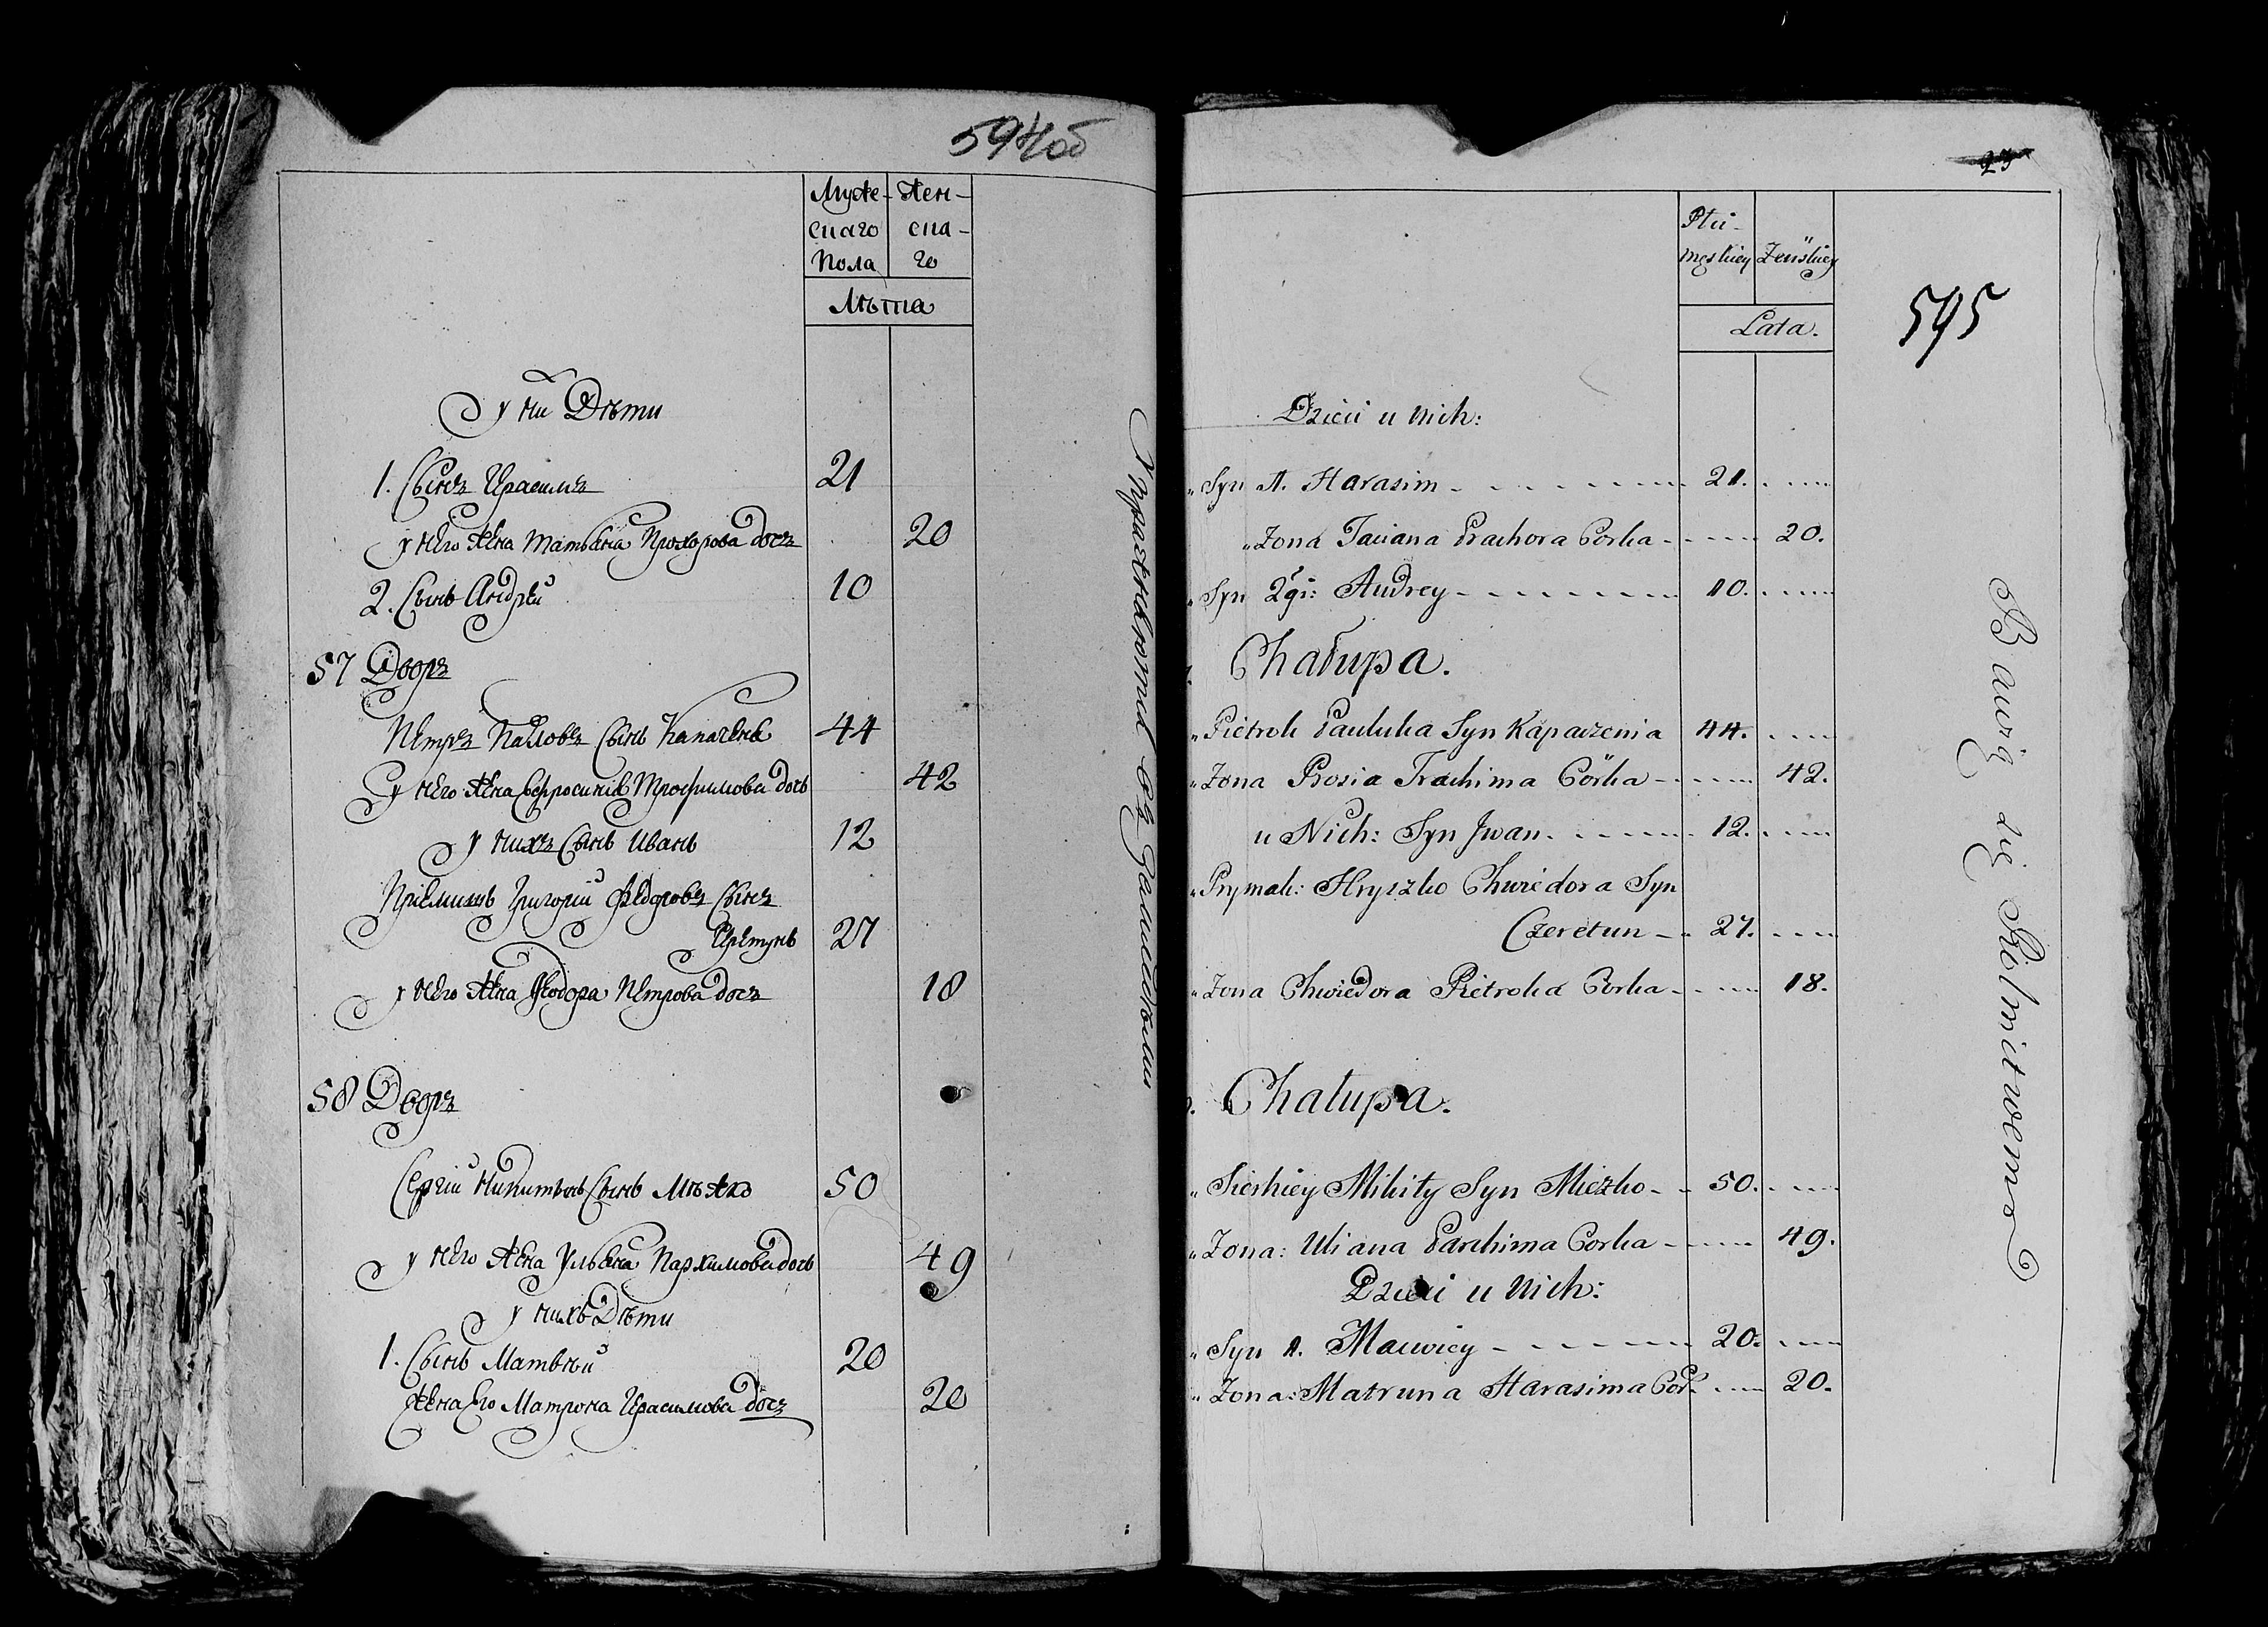 594об
Муже- Жен-
скаго ска-
Пола го
Лѣта
у ни Дѣти
1. Сынъ Герасимъ 21
у него жена Татьяна Прохорова дочъ 20
2. Сынъ Андрей 10
57 Дворъ
Петръ Павловъ Сынъ Капачене 44
у него жена Евфросиния Трофимова дочь 42
у нихъ Сынъ Иванъ 12
Приемышъ Григорий Федоровъ Сынъ
Черетунъ 27
у него жена Феодора Петрова дочъ 18
58 Дворъ
Сергій Никитинъ Сынъ Мѣжко 50
у него жена Ульяна Пархимова дочь 49
у нихъ Дѣти
1. Сынъ Матвѣй 20
жена его Матрона Герасимова дочъ 20
Упражняютца въ Земледѣлии
23
595
Płci
męskiey Zeńskiey
Lata.
Dzieci u Nich:
„ Syn 1. Harasim 21.
„ Zona Taciana Prachora Corka 20.
„ Syn 2gi: Andrey 10.
Chałupa.
„ Pietrok Pauluka Syn Kapaczenia 44.
„ Zona Prosia Trachima Córka 42.
u Nich: Syn Jwan 12.
„ Prymak: Hryszko Chwiedora Syn
Czeretun 27.
„ Zona Chwiedora Pietroka Corka 18.
Chałupa.
„ Sierhiey Mikity Syn Mieżko 50.
„ Zona: Uliana Parchima Corka 49.
Dzieci u Nich:
„ Syn 1. Maciwiey 20.
„ Zona: Matruna Harasima Cor: 20.
Bawią się Rolnictwem